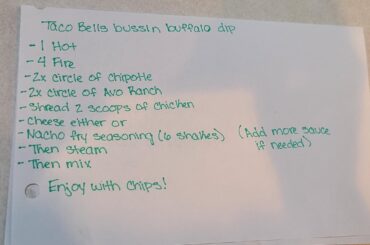 Taco Bells bussin buffalo dip
- 1 Hot
- 4 Fire
- 2x circle of chipotle
- 2x circle of Avo Ranch
- Shread 2 scoops of chicken
- cheese either or
- Nacho fry seasoning (6 shakes) (Add more sauce if needed)
- Then steam
- Then mix
Enjoy with chips!